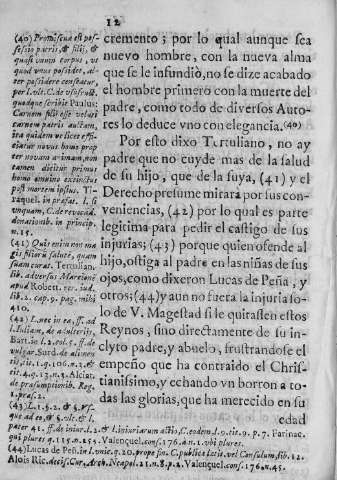 12
cremento; por lo qual aunque sea
nuevo hombre, con la nueva alma
que se le infundiò, no se dize acabado
el hombre primero con la muerte del
padre, como todo de diversos Auto-
res lo deduce vno con elegancia. (40)
Por esto dixo Tertuliano, no ay
padre que no cuyde mas de la salud
de su hijo, que de la suya, (41) y el
Derecho presume mirarà por sus con-
veniencias, (42) por lo qual es parte
legitima para pedir el castigo de sus
injurias; (43) porque quien ofende al
hijo, ostiga al padre en las niñas de sus
ojos, como dixeron Lucas de Peña, y
otros; (44) y aun no fuera la injuria so-
lo de V. Magestad si le quitassen estos
Reynos, sino directamente de su in-
clyto padre, y abuelo, frustrandose el
empeño que ha contraido el Chris-
tianissimo, y echando vn borron a to-
das las glorias, que ha merecido en su
edad
(40) Promiscua est pos-
sessio patris, & filij, &
quod vnum corpus, vt
quod vnus possidet, al-
ter possidere censeatur,
per l. vlt. C. de
quodque scribit Paulus:
Carnem filij esse veluti
carnem patris auctam,
ita quidem vt licet effi-
ciatur novus homo prop
ter novam animam, non
tamen dicitur primus
homo omnino extinctus
post mortem ipsius. Ti-
raquel. in præfat. l. si
vnquam, C. de revocãd.
donationib. in princip.
n. 15.
(41) Quis enim non ma-
gis filiorũ salutẽ, quam
suam curat. Tertulian.
lib. adversus Marcionẽ
apud Robert. rer. iud.
lib. 2. cap. 9. pag. mihi
410.
(42) L. nec in ea, ff. ad
l. Iuliam, de adulterijs,
Bart. in l. 2. col. 5. ff. de
vulgar. Surd. de alimen
tit. 4. q. 13. n. 3. Alciat.
de præsumptionib. Reg.
1. præs. 2.
(43) L. 1. §. 2. & 5. 
que ad eo, & §. vlt. & l.
pater 41. ff. de iniur. l. 2. & l. iniuriarum actio, C. eodem, l. 9. tit. 9. p. 7. Farinac.
qui plures q. 115. n. 155. Valençuel. cons. 176. à n. 1. vbi plures.
(44) Lucas de Peñ. in l. vnic. q. 20. prope fin. C. publicæ lætit. vel Consulum, lib. 12.
Alois Ric. decis. Cur. Arch. Neapol. 21. n. 8. p. 2. Valençuel. cons. 176. n. 45.